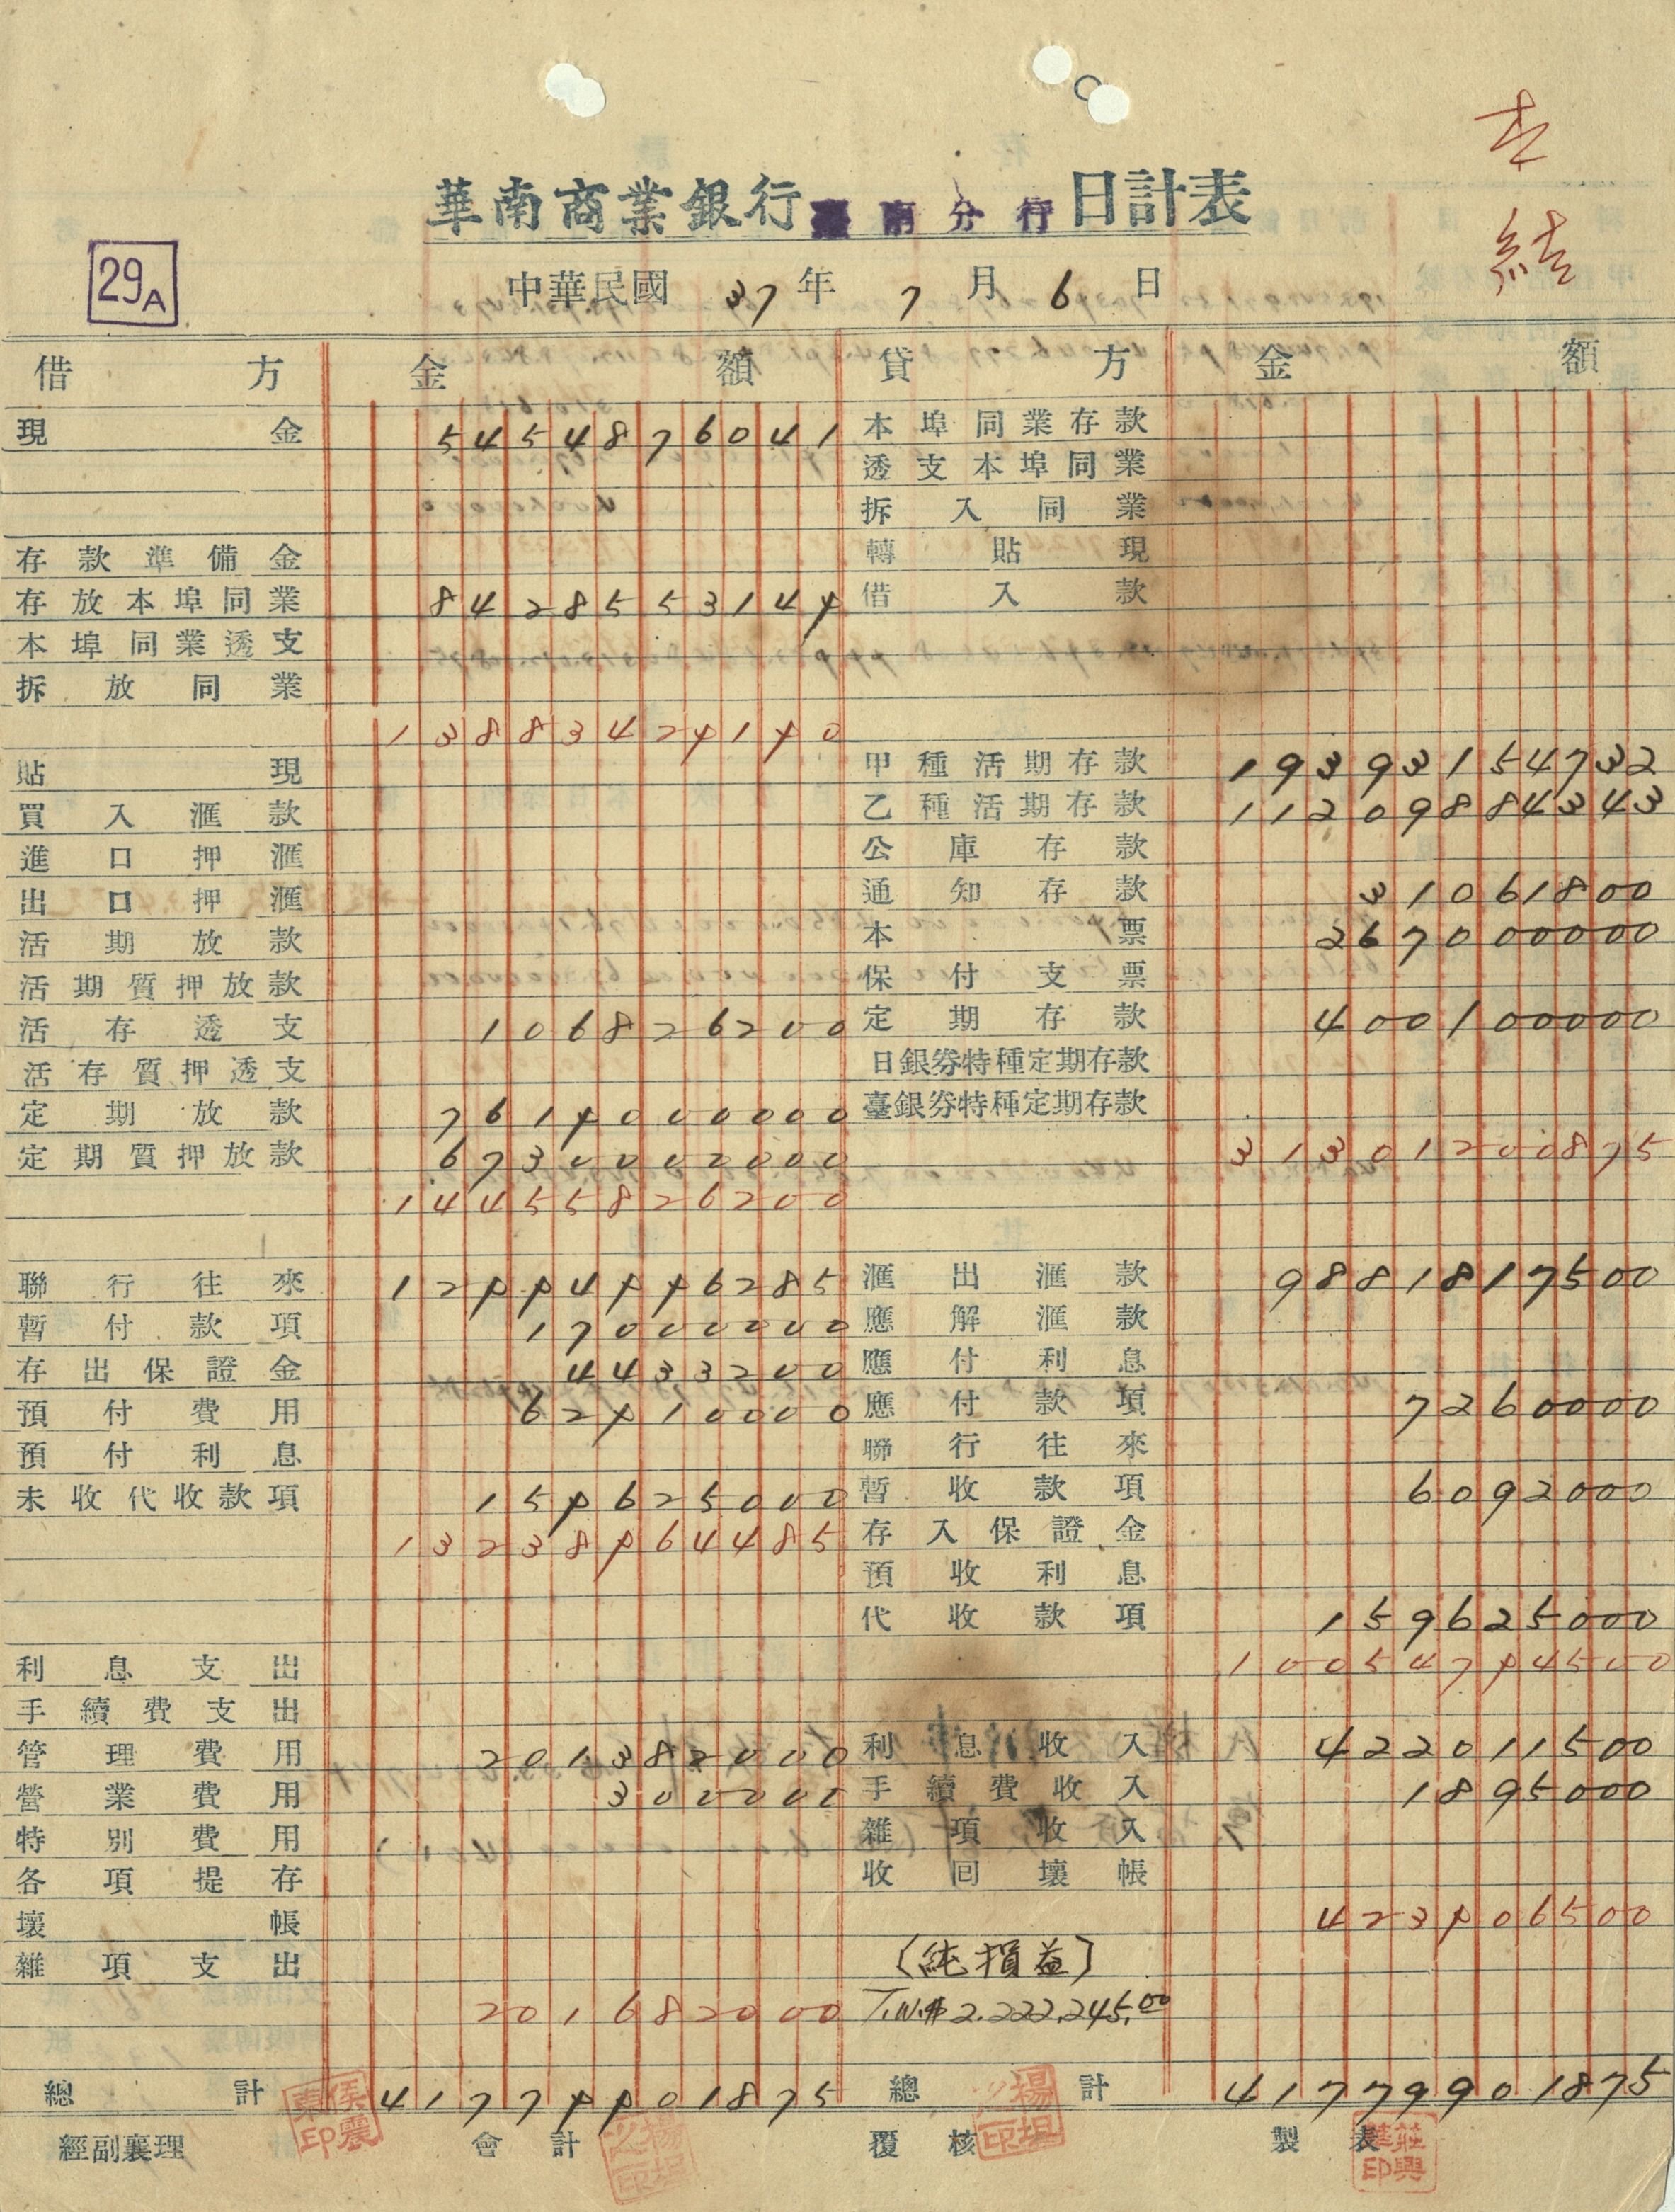 結
華南商業銀行臺南分行日計表
29A
中華民國 37 年 7 月 6 日
借方 金額 貸方 金額
現金 5454876041 本埠同業存款
透支本埠同業
拆入同業
存款準備金 轉貼現
存放本埠同業 8428553149 借入款
本埠同業透支
拆放同業
13883429190
貼現 甲種活期存款 19393154732
買入滙款 乙種活期存款 11209884343
進口押滙 公庫存款
出口押滙 通知存款 31061800
活期放款 本票 267000000
活期質押放款 保付支票
活存透支 106826200 定期存款 400100000
活存質押透支 日銀券特種定期存款
定期放款 7619000000 臺銀券特種定期存款
定期質押放款 6730000000 31301200875
14455826200
聯行往來 12994996285 滙出滙款 9881817500
暫付款項 17000000 應解滙款
存出保證金 4433200 應付利息
預付費用 62910000 應付款項 7260000
預付利息 聯行往來
未收代收款項 159625000 暫收款項 6092000
13238964485 存入保證金
預收利息
代收款項 159625000
利息支出 10054794500
手續費支出
管理費用 201382000 利息收入 422011500
營業費用 300000 手續費收入 1895000
特別費用 雜項收入
各項提存 收回壞帳
壞帳 423906500
雜項支出 (純損益)
201682000 T.W.$ 2.222.245.00
總計 41779901875 總計 41779901875
經副襄理 會計 覆核 製表
侯震東印 楊坦印 莊興華印